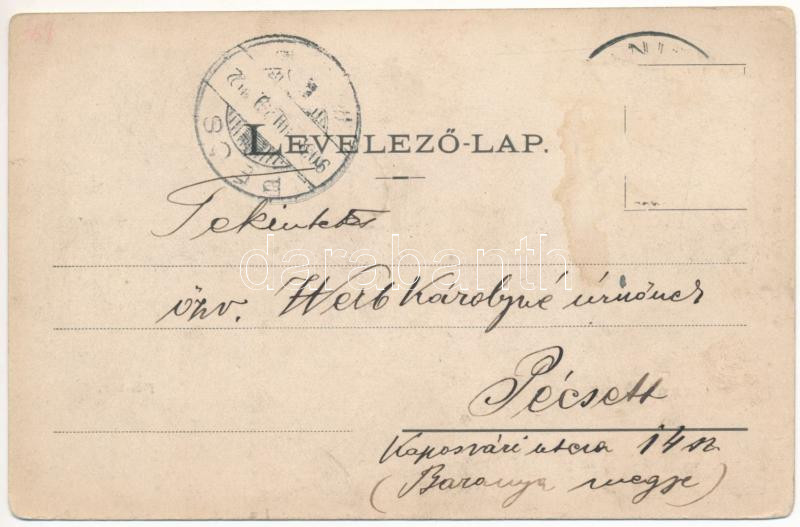 PÉCS
LEVELEZŐ-LAP.
Tekintetes
darabanth
özv. Weib Károlyné úrnőnek
Pécsett
Kaposvári utcza 14 sz
(Baranya megye)